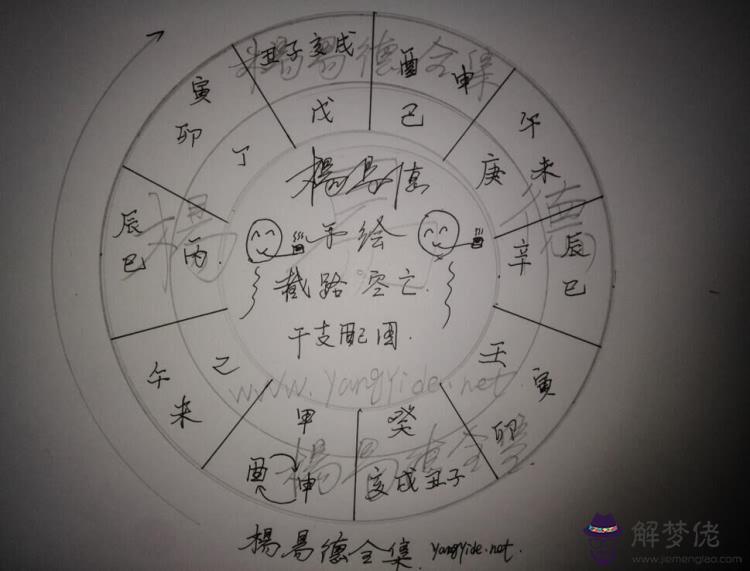 丑子亥戌
戊
酉申
己
午未
庚
辰巳
辛
壬
寅卯
癸
亥戌丑子
甲
酉申
己
午未
丙
辰巳
丁
寅卯
楊易德
手绘
截路空亡
干支配图
www.yangyide.net
楊易德全集
楊易德
楊易德全集
楊易德全集 yangyide.net.
解梦佬
www.jiemenglao.com